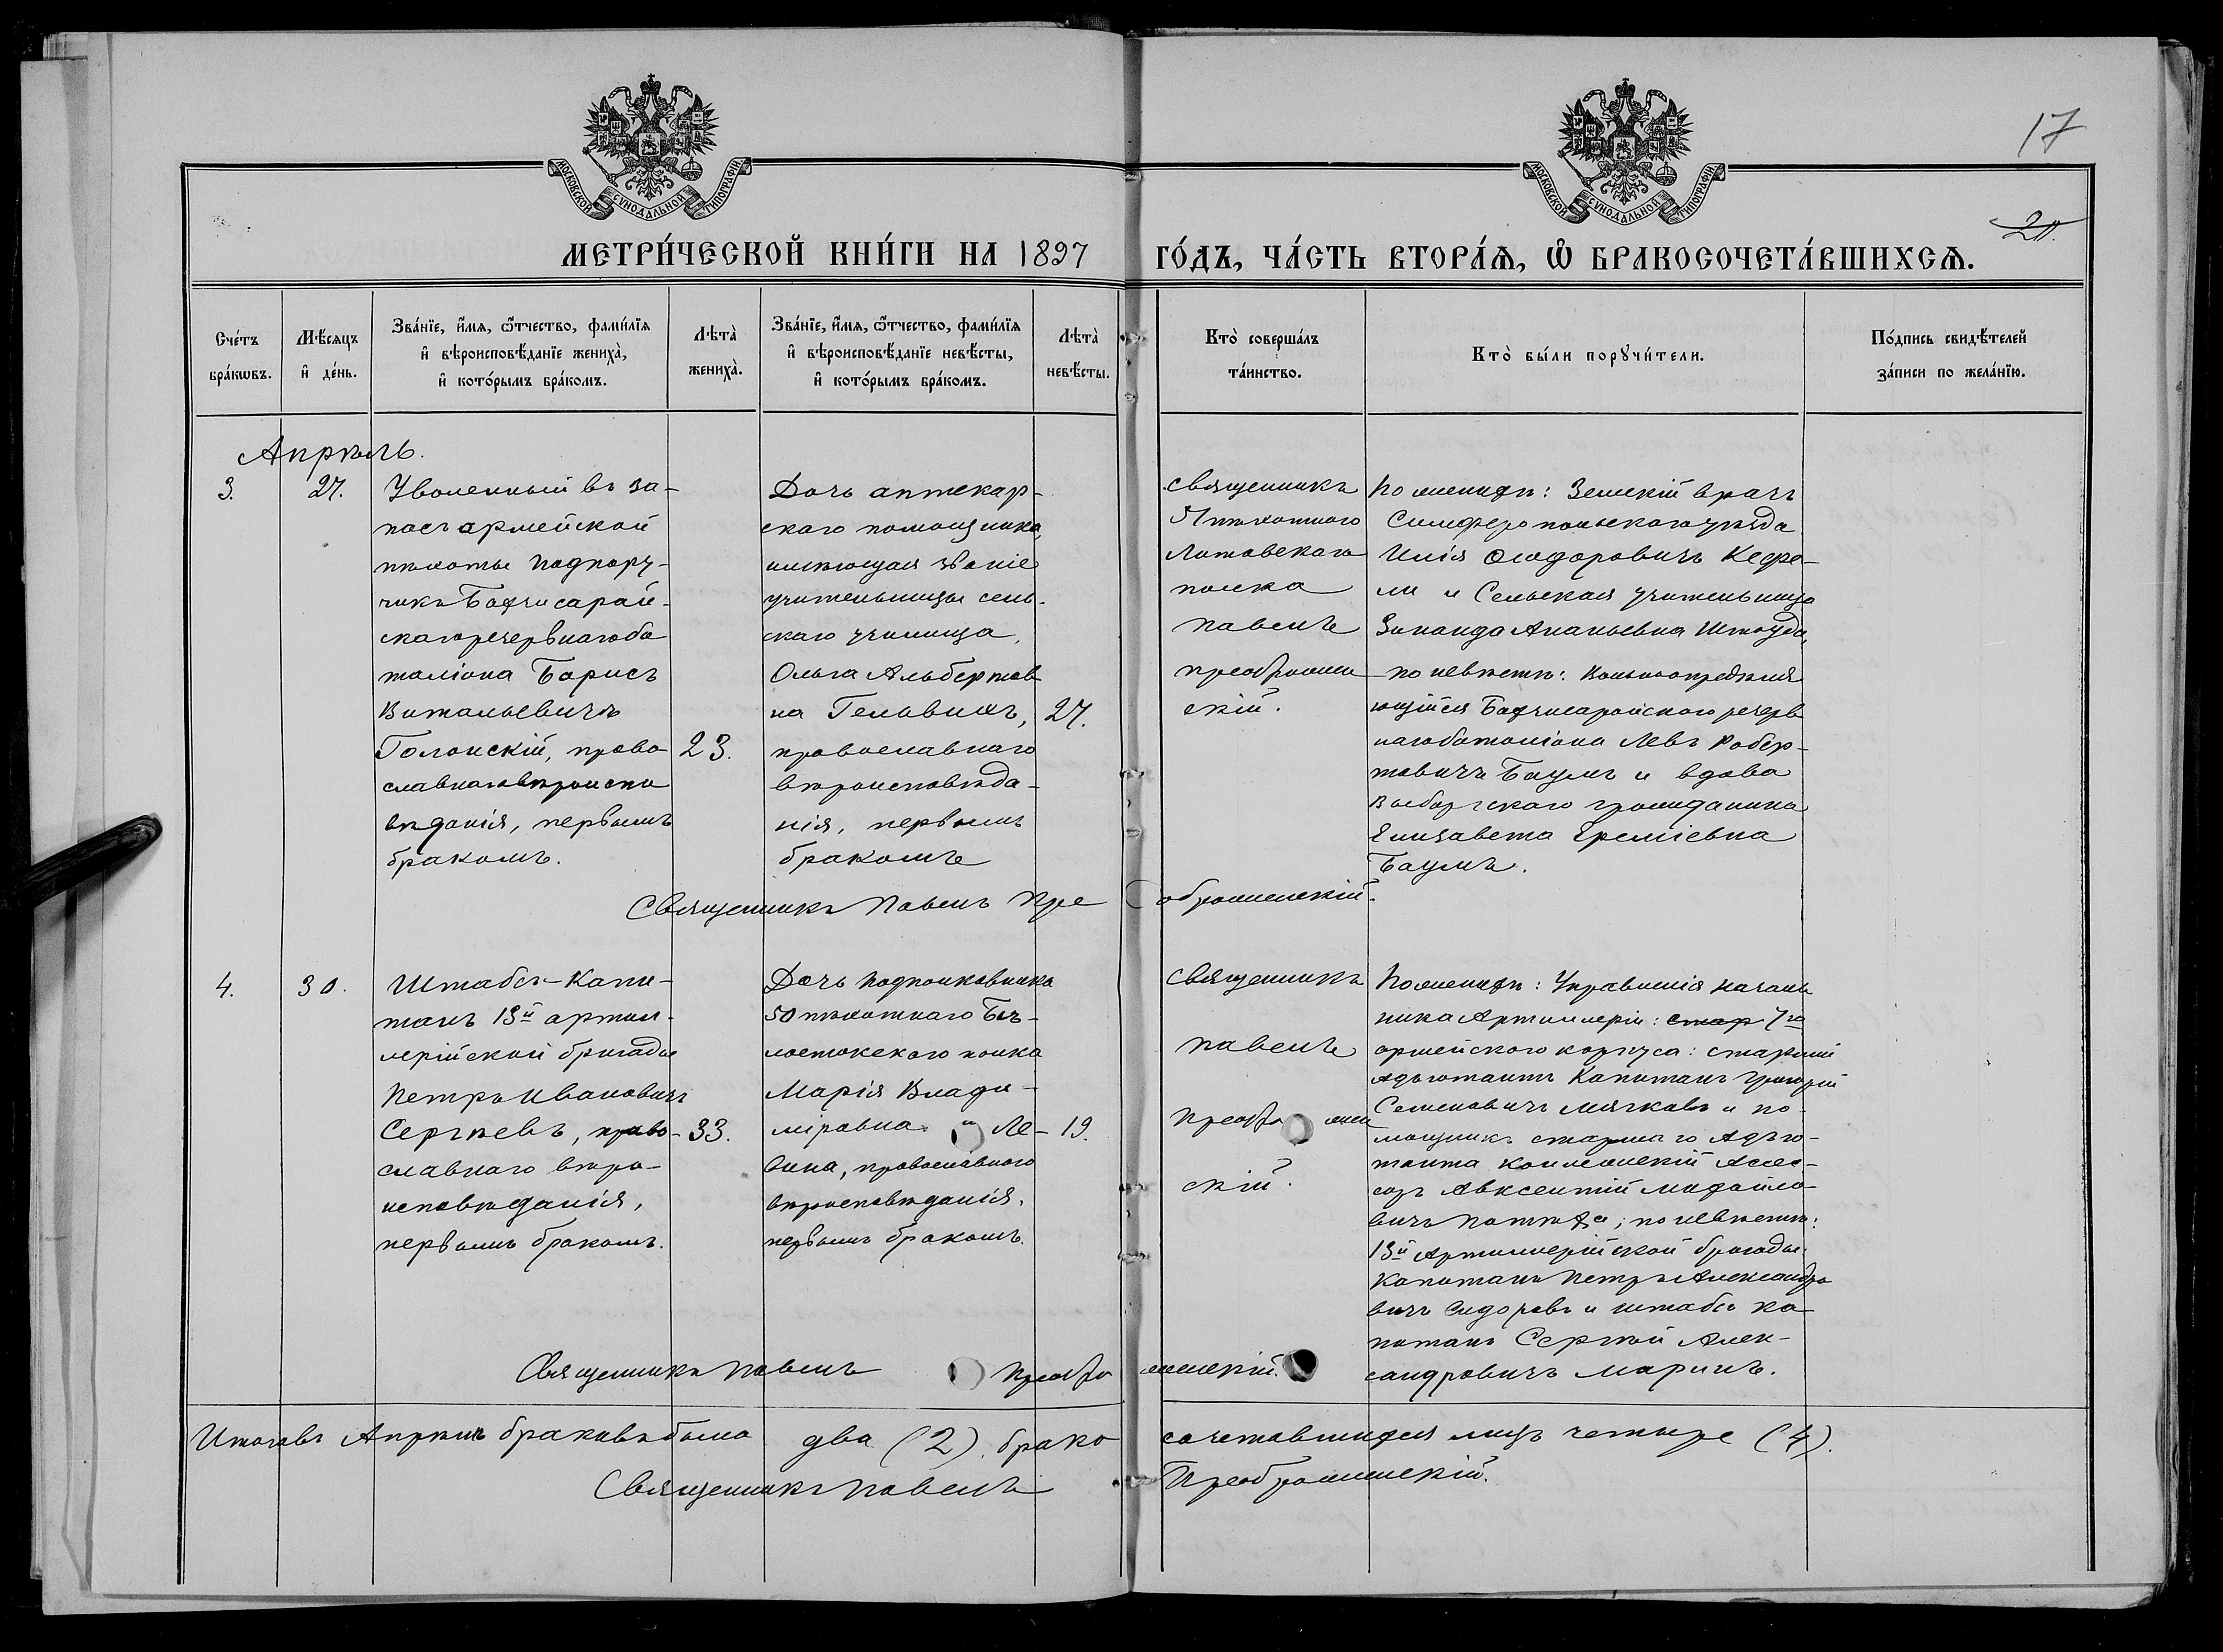 17
МОСКОВСКОЙ СѴНОДАЛЬНОЙ ТИПОГРАФІИ
МОСКОВСКОЙ СѴНОДАЛЬНОЙ ТИПОГРАФІИ
МЕТРИ́ЧЕСКОЙ КНИ́ГИ НА 1897 ГО́ДЪ, ЧА́СТЬ ВТОРА́Ѧ, Ѽ БРАКОСОЧЕТА́ВШИХСѦ.
Сче́тъ
бра́кѡвъ.
Мѣ́сяцъ
и҆ де́нь.
Зва́нїе, и҆́мя, ѻ҆́тчество, фами́лїя
и҆ вѣроисповѣ́данїе жениха̀,
и҆ кото́рымъ бра́комъ.
Лѣта̀
жениха̀.
Зва́нїе, и҆́мя, ѻ҆́тчество, фами́лїя
и҆ вѣроисповѣ́данїе невѣ́сты,
и҆ кото́рымъ бра́комъ.
Лѣта̀
невѣ́сты.
Кто̀ соверша́лъ
та́инство.
Кто̀ бы́ли порꙋчи́тели.
По́дпись свидѣ́телей
за́писи по жела́нїю.
Апрѣль.
3.
27.
Уволенный въ за-
пасъ армейской
пѣхоты подпору-
чикъ Бахчисарай-
скаго резервнаго ба
таліона Борисъ
Витальевичъ
Голонскій, право
славнаго вѣроиспо
вѣданія, первымъ
бракомъ.
23.
Дочь аптекар-
скаго помощника,
имѣющая званіе
учительницы сель-
скаго училища,
Ольга Альбертов
на Гельвихъ,
православнаго
вѣроисповѣда-
нія, первымъ
бракомъ
27.
Священникъ
51 пѣхотнаго
Литовскаго
полка
Павелъ
Преображен
скій.
По женихѣ: Земскій врачъ
Симферопольскаго уѣзда
Илія Ѳеодоровичъ Кефе-
ли и Сельская учительница
Зинаида Ананьевна Штоуда,
по невѣстѣ: Вольноопредѣля
ющійся Бахчисарайскаго резерв
наго баталіона Левъ Робер-
товичъ Баумъ и вдова
Выборгскаго гражданина
Елизавета Ереміевна
Баумъ.
Священникъ Павелъ Преображенскій.
4.
30.
Штабсъ-Капи-
танъ 13й артил-
лерійской бригады
Петръ Ивановичъ
Сергѣевъ, право-
славнаго вѣро-
исповѣданія,
первымъ бракомъ.
33.
Дочь подполковника
50 пѣхотнаго Бѣ-
лостокскаго полка
Марія Влади-
міровна Ле-
вина, православнаго
вѣроисповѣданія,
первымъ бракомъ.
19.
Священникъ
Павелъ
Преображен
скій.
По женихѣ: Управленія началь
ника Артиллеріи: стар 7го
армейскаго корпуса: старшій
Адъютантъ Капитанъ Григорій
Семеновичъ Мячковъ и по-
мощникъ старшаго Адъю-
танта коллежскій Асес-
соръ Авксентій Михайло-
вичъ; по невѣстѣ:
13й Артиллерійской бригады
Капитанъ Петръ Александро
вичъ Сидоровъ и штабсъ ка
питанъ Сергѣй Алек-
сандровичъ Маринъ.
Священникъ Павелъ Преображенскій.
Итого въ Апрѣлѣ браковъ было два (2). бракосочетавшихся лицъ четыре (4).
Священникъ Павелъ Преображенскій.